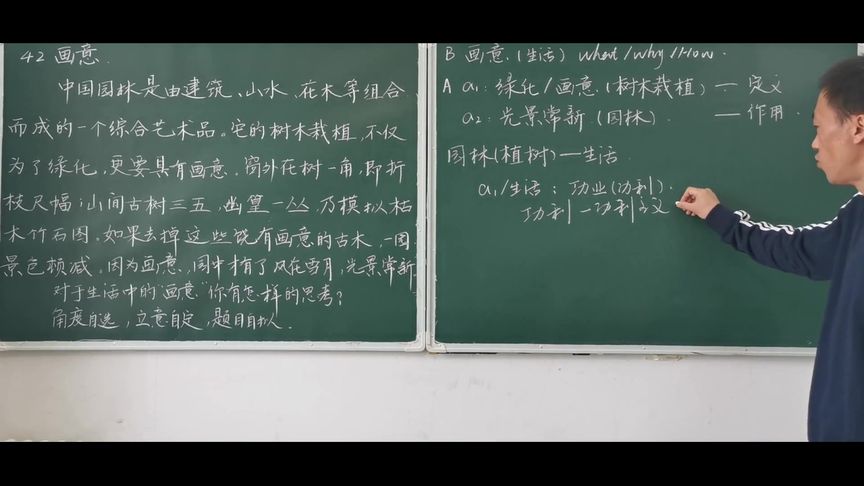 42 画意.
中国园林是由建筑、山水、花木等组合
而成的一个综合艺术品。它的树木栽植,不仅
为了绿化,更要具有画意。窗外花树一角,即折
枝尺幅;山间古树三五,幽篁一丛,乃模拟枯
木竹石图。如果去掉这些饶有画意的古木,一园
景色顿减。因为画意,园中才有了风花雪月,光景常新
对于生活中的"画意"你有怎样的思考?
角度自选,立意自定,题目自拟.
B 画意.(生活) what/why/How.
A a1:绿化/画意.(树木栽植) — 定义
a2:光景常新.(园林). — 作用.
园林(植树)—生活.
a1/生活:功业(功利).
功利—功利主义